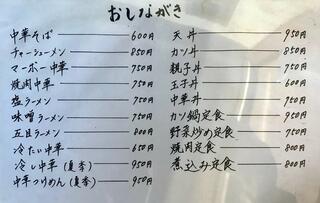 おしながき
中華そば 600円
チャーシューメン 850円
マーボー中華 750円
焼肉中華 750円
塩ラーメン 750円
味噌ラーメン 750円
五目ラーメン 800円
冷たい中華 650円
冷し中華(夏季) 950円
中華つけめん(夏季) 950円
天丼 950円
カツ丼 850円
親子丼 750円
玉子丼 600円
中華丼 750円
カツ鍋定食 950円
野菜炒め定食 750円
焼肉定食 800円
煮込み定食 800円